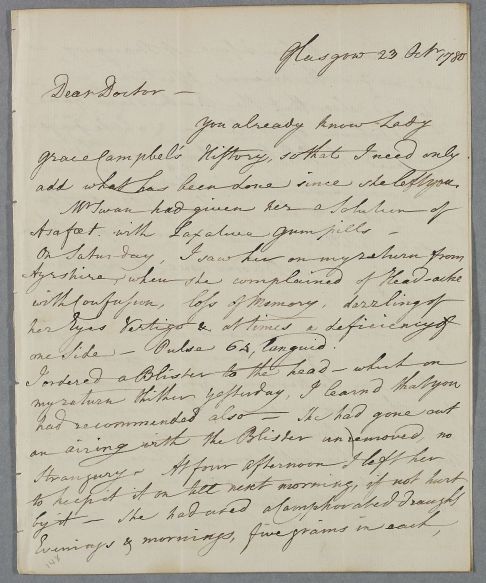 Glasgow 23 Octr. 1780
Dear Doctor —
You already know Lady
Grace Campbel's History, so that I need only
add what has been done since she left you.
Mr Swan had given her a Solution of
Asafœt. with gum pills —
On Saturday, I saw her on my return from
Ayrshire, when she complained of Head-ache
with Confusion, loss of Memory, dazzling of
her Eyes Vertigo & at times a deficiency of
one Side — Pulse 64, languid.
I ordered a Blister to the head — which on
my return thither yesterday, I learnd that you
had recommended also — She had gone out
an airing with the Blister unremoved, no
Strangury. At four afternoon I left her
to keep it on till next morning, if not hurt
by it — She had used a Camphorated draught
Evenings & mornings, five grains in each,
148